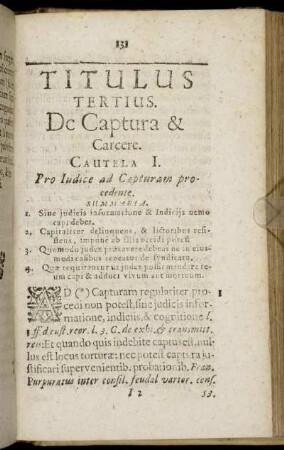 131
TITULUS
TERTIUS.
De Captura &
Carcere.
CAUTELA I.
Pro Iudice ad Capturam pro-
cedente.
SUMMARIA.
1. Sine judicis informatione & Indicijs nemo
capi debet.
2. Capitaliter delinquens, & lictoribus resi-
stens, impunè ab illis occidi potest
3. Quomodo judex præcavere debeat ne in ejus-
modi casibus teneatur de syndicatu.
4. Quæ requirantur ut judex possit mandare re-
um capi & adduci vivum aut mortuum.
AD (*) Capturam regulariter pro- 1
cedi non potest, sine judicis infor-
matione, indiciis, & cognitione l.
ff. d. cust. reor. l. 3. C. de exhi. & transmitt.
reis Et quando quis indebitè captus est, nul-
lus est locus torturæ: nec potest captura ju-
stificari supervenientib. probationib. Fran.
Purpuratus inter consil. feudal varior. cons.
I 2 53.